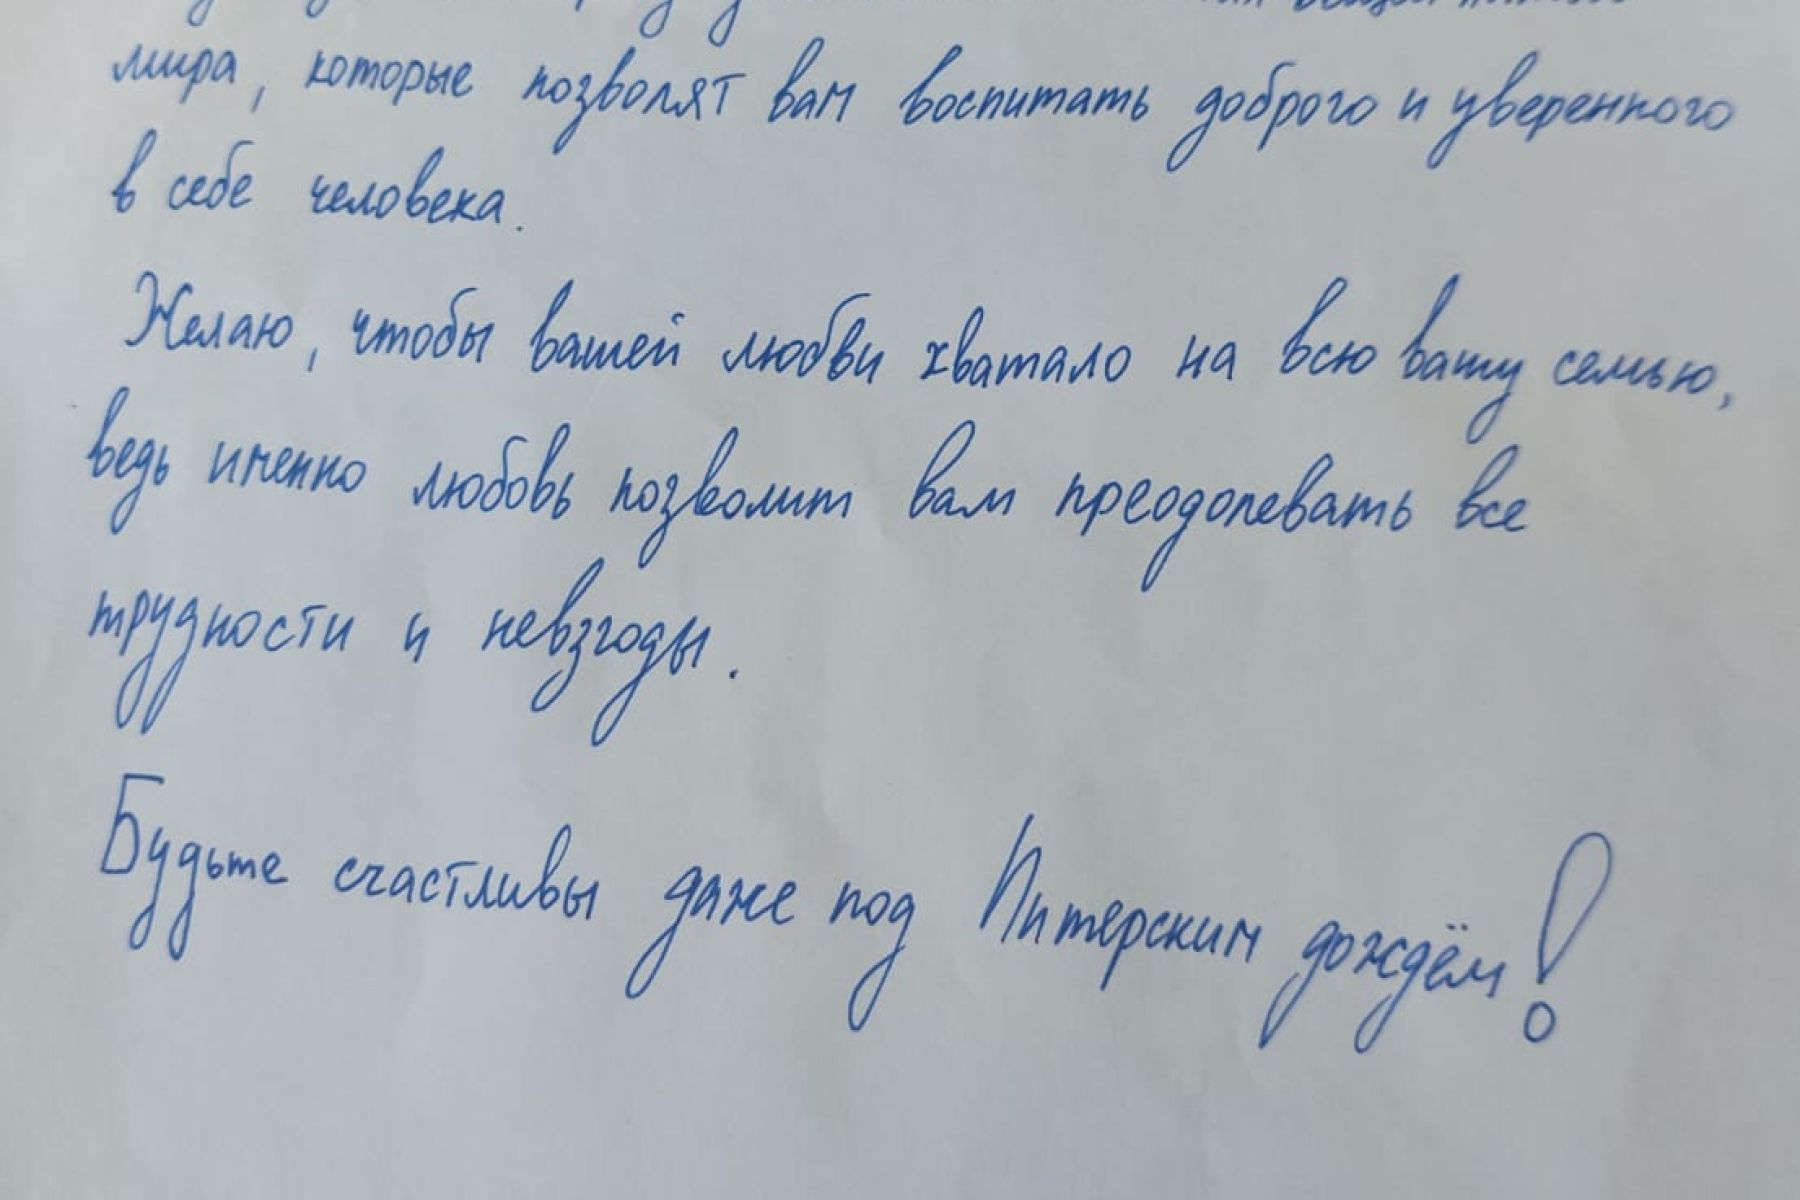 мира, которые позволят вам воспитать доброго и уверенного
в себе человека.
Желаю, чтобы вашей любви хватало на всю вашу семью,
ведь именно любовь позволит вам преодолевать все
трудности и невзгоды.
Будьте счастливы даже под Питерским дождём!